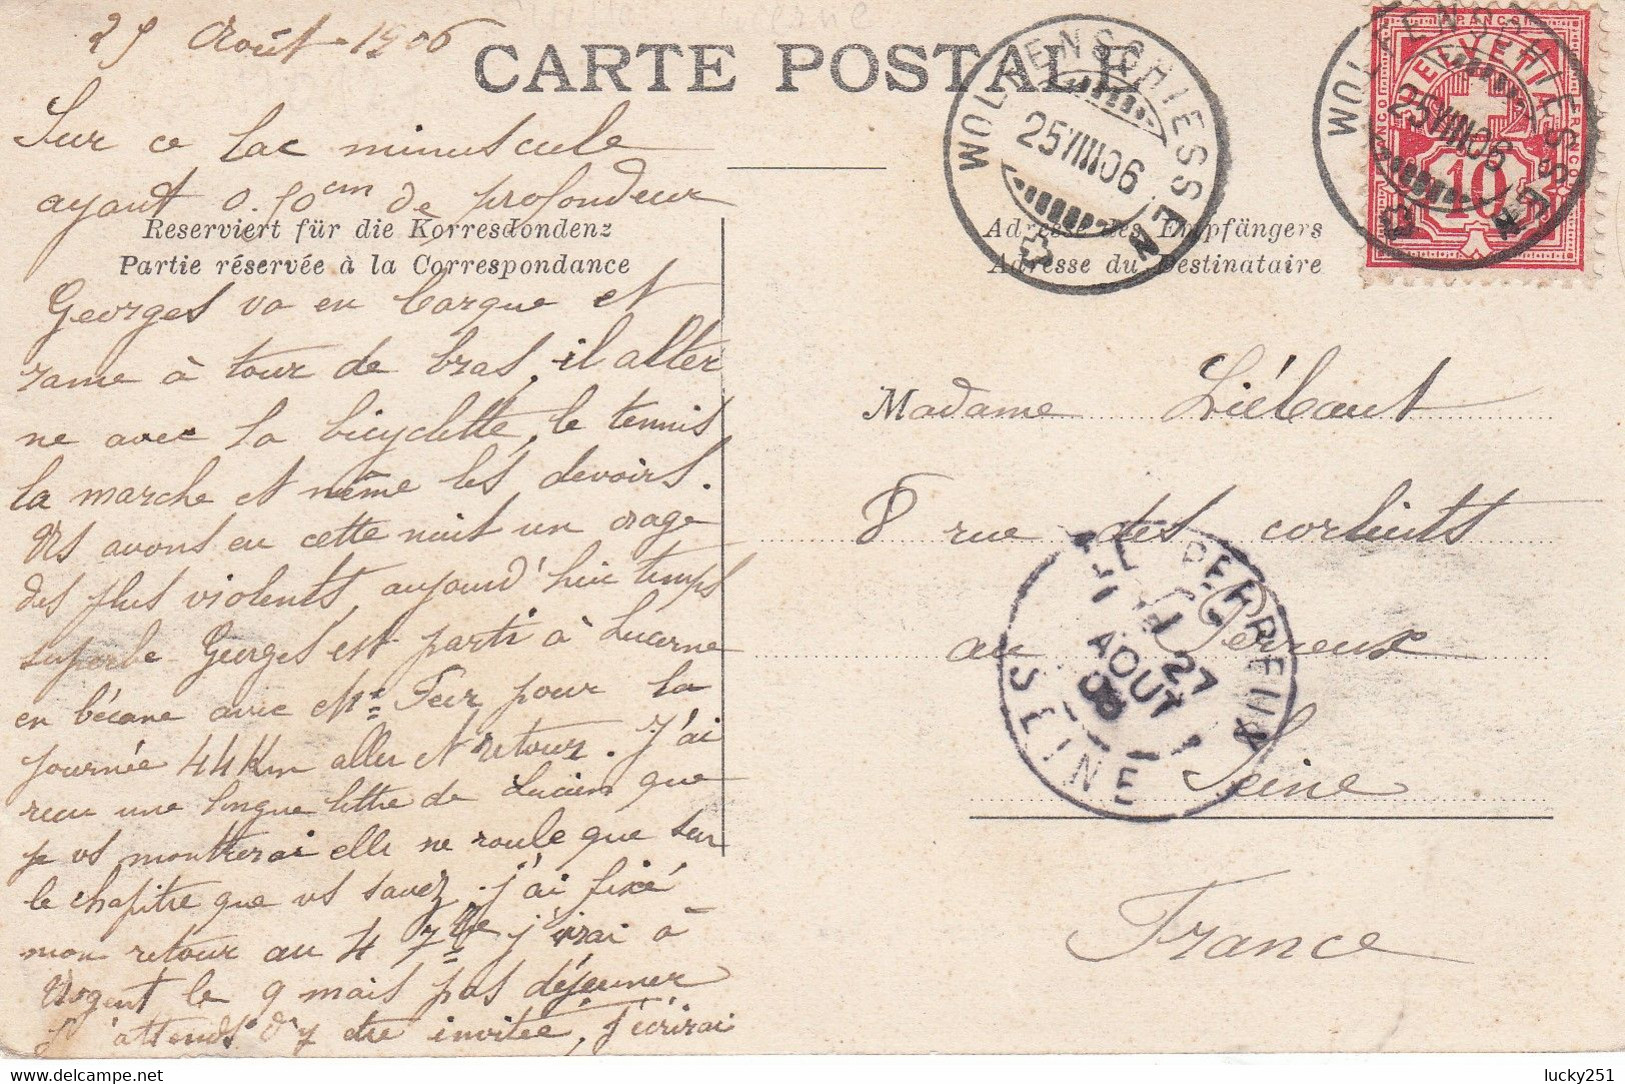 25 Août 1906
CARTE POSTALE
Sur ce lac minuscule
ayant 0.50cm de profondeur
Reserviert für die Korresdondenz
Partie réservée à la Correspondance
Georges va en barque et
rame à tour de bras, il alter
ne avec la bicyclette, le tennis
la marche et même les devoirs.
Ns avons eu cette nuit un orage
des plus violents, aujourd'hui temps
superbe Georges est parti à Lucerne
en bécane avec Mr pour la
journée 44 Km aller et retour. J'ai
recu une longue lettre de Lucien que
je vs montrerai elle ne roule que sur
le chapitre que vs savez. j'ai fixé
mon retour au 4 7bre j'irai à
Nogent le 9 mais pas déjeuner
J'attends d'y être invitée, J'écrirai
WOLFENSCHIESSEN
25 VIII 06
WOLFENSCHIESSEN
25 VIII 06
FRANCO
HELVETIA
10
Adresse des Empfängers
Adresse du Destinataire
Madame Liébaut
8 rue des
au Perreux
Seine
France
LE PERREUX
27
AOUT
06
SEINE
lucky251